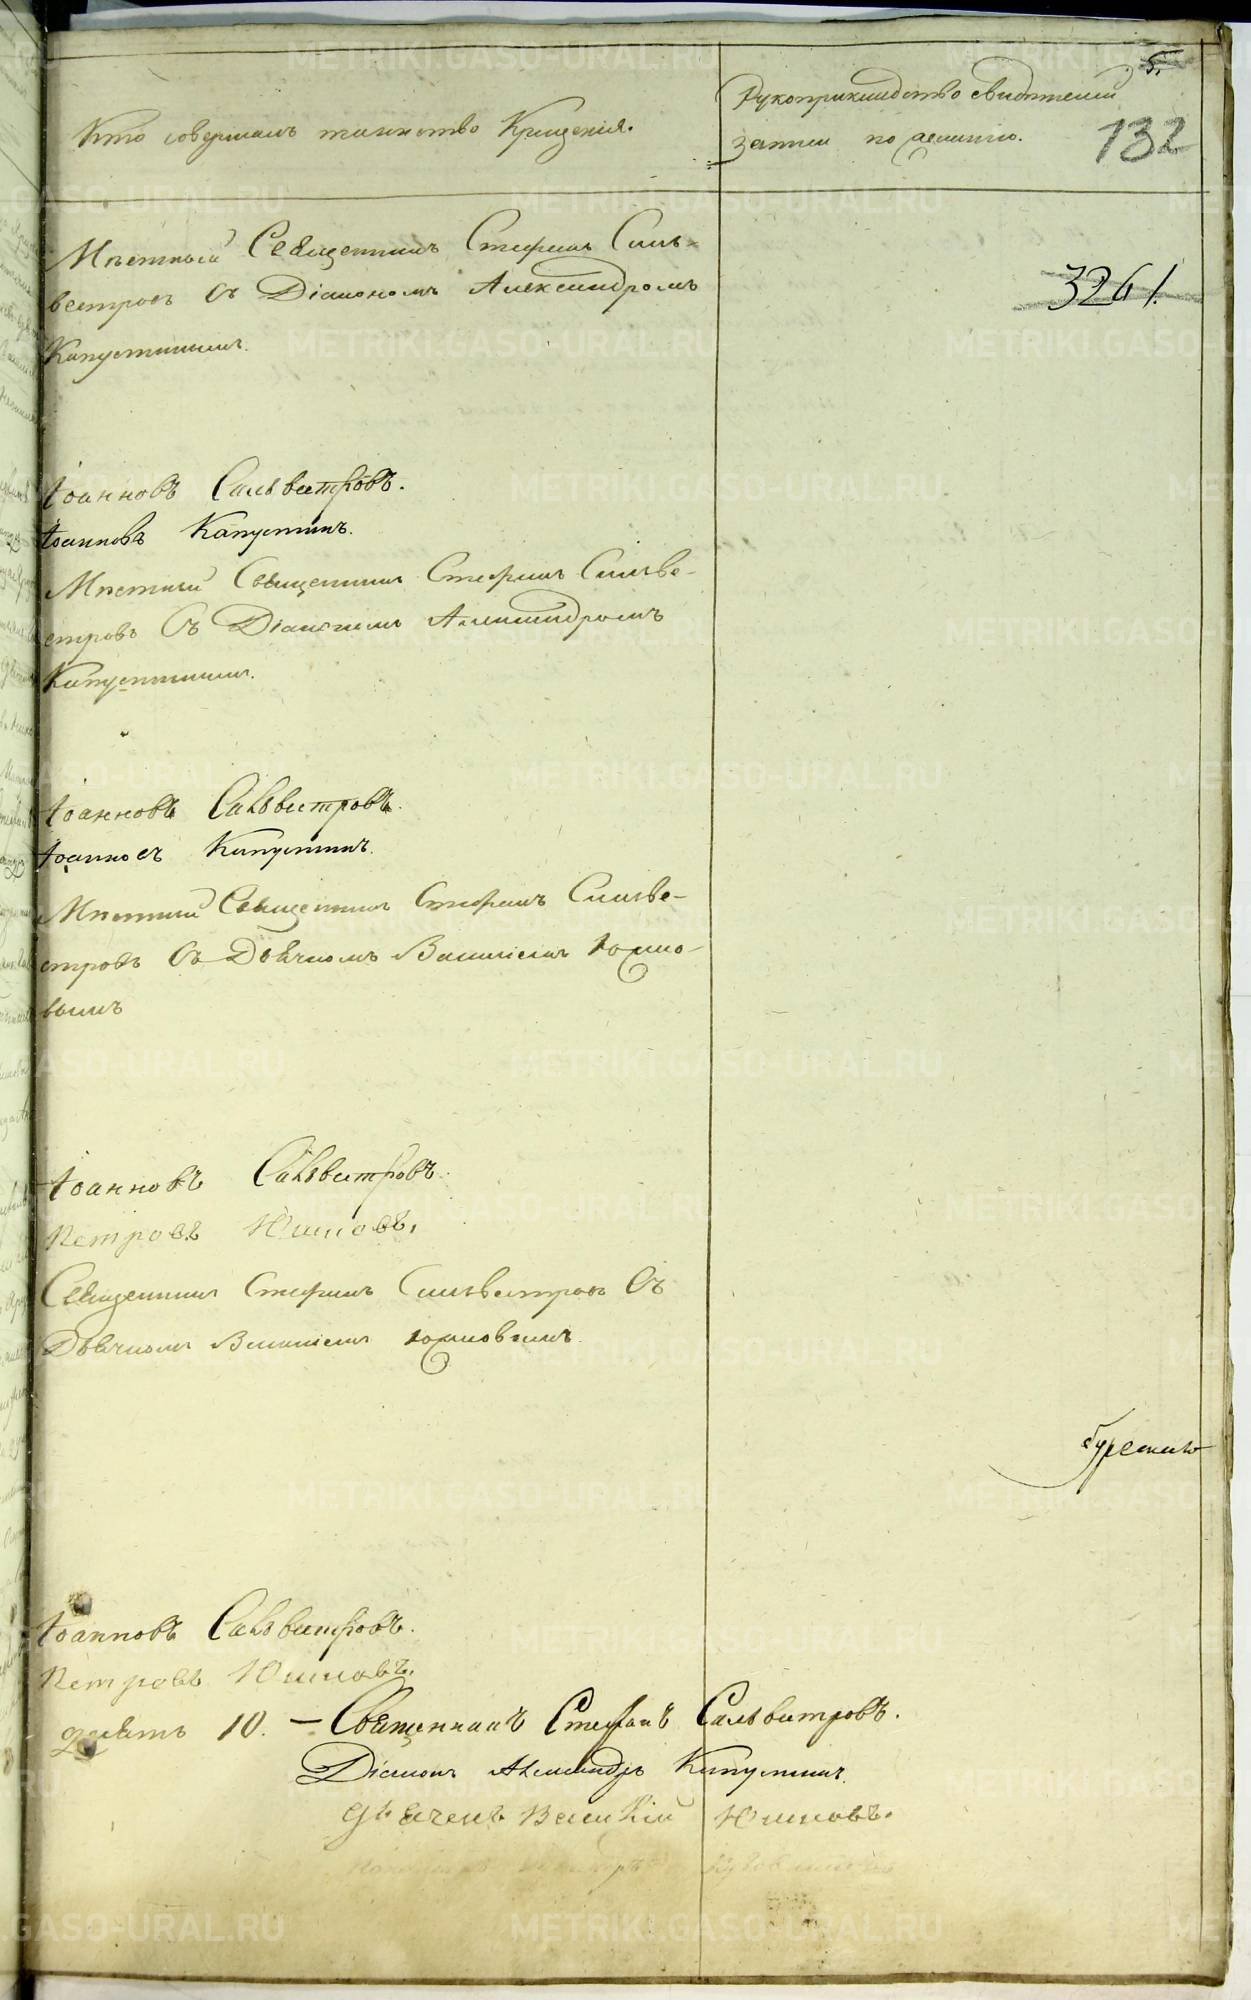 5.
Кто совершалъ таинство Крещенія.
Рукоприкладство свидѣтелей
записи по желанію.
132
Мѣстный Священникъ Стефанъ Силь-
вестровъ съ Діакономъ Александромъ
Капустинымъ.
3261.
Іоанновъ Сильвестровъ.
Іоанновъ Капустинъ.
Мѣстный Священникъ Стефанъ Сильве-
стровъ Съ Діакономъ Александромъ
Капустинымъ.
Іоанновъ Сильвестровъ.
Іоанновъ Капустинъ.
Мѣстный Священникъ Стефанъ Сильве-
стровъ Съ Дьячкомъ Василіемъ
вымъ
Іоанновъ Сильвестровъ.
Петровъ
Священникъ Стефанъ Сильвестровъ Съ
Дьячкомъ Василіемъ
Іоанновъ Сильвестровъ.
Петровъ
10. – Священникъ Стефанъ Сильвестровъ.
Діаконъ Александръ Капустинъ.
Дьячекъ Василій
METRIKI.GASO-URAL.RU